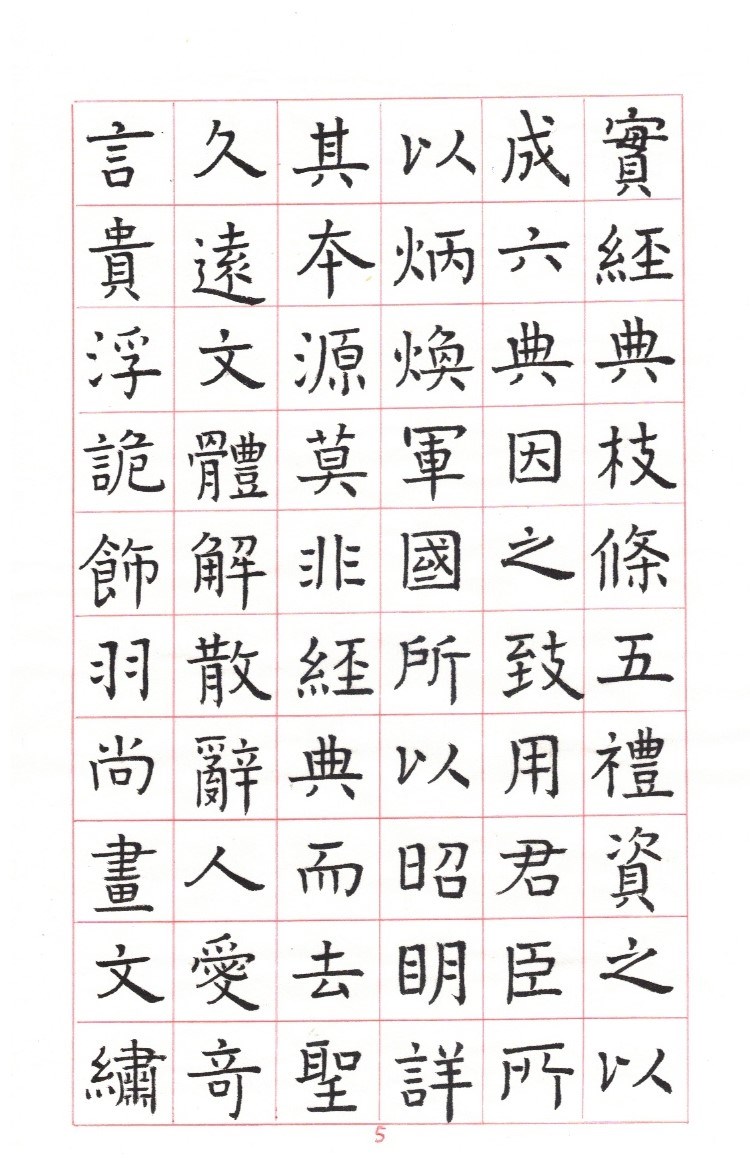 實經典枝條五禮資之以
成六典因之致用君臣所
以炳煥軍國所以昭明詳
其本源莫非經典而去聖
久遠文體解散辭人愛奇
言貴浮詭飾羽尚畫文繡
5